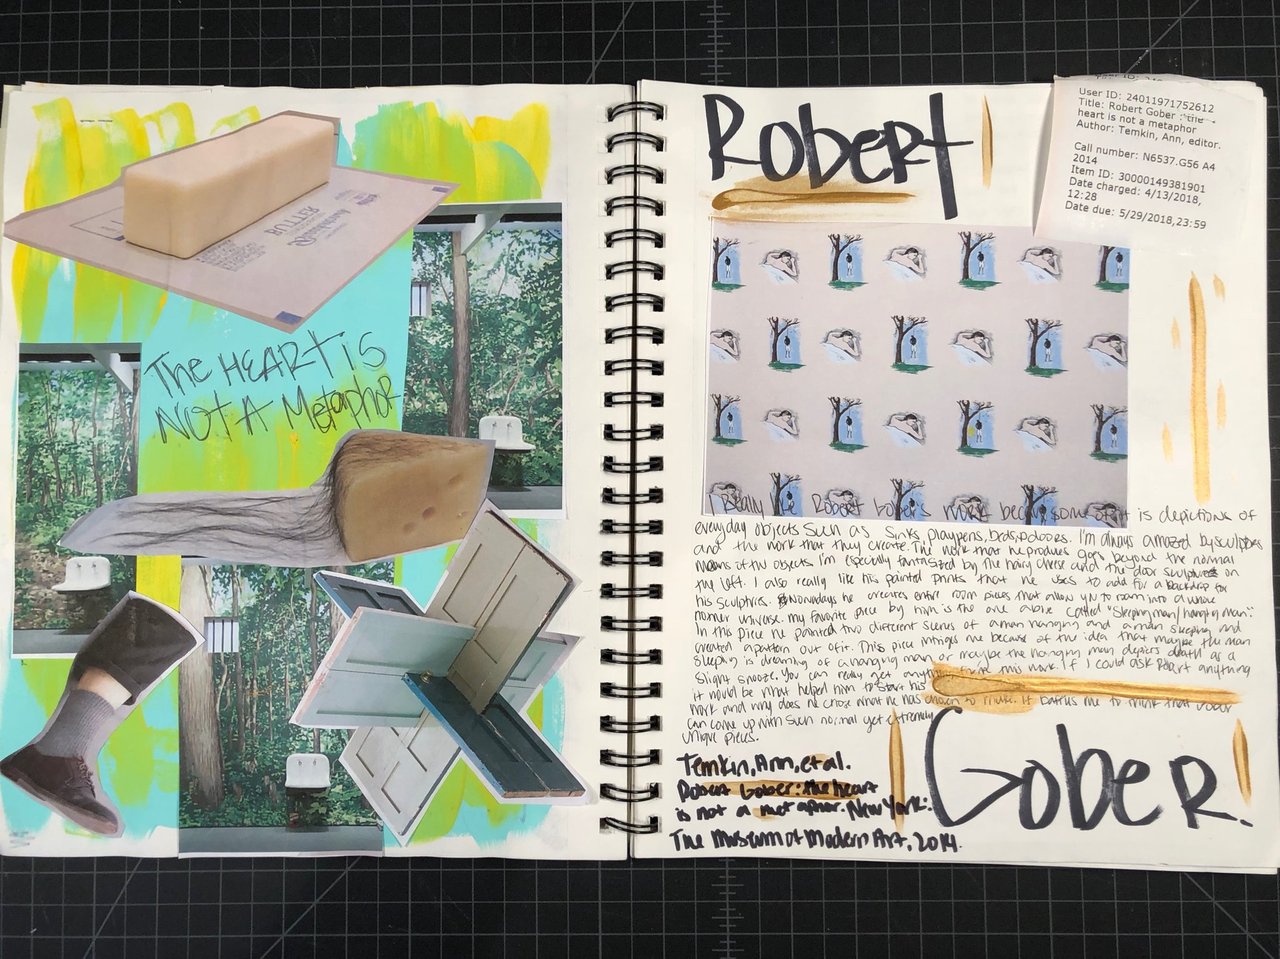 BUTTER
The HEART is
NOT A Metaphor
Robert
User ID: 24011971752612
Title: Robert Gober : the
heart is not a metaphor
Author: Temkin, Ann, editor.
Call number: N6537.G56 A4
2014
Item ID: 30000149381901
Date charged: 4/13/2018,
12:28
Date due: 5/29/2018,23:59
I Really like Robert Gober's work because some of it is depictions of
everyday objects such as sinks, playpens, beds, doors. I'm always amazed by sculptors
and the work that they create. The work that he produces goes beyond the normal
means of the objects I'm especially fantasized by the hairy cheese and the door sculptures on
the left. I also really like his painted prints that he uses to add for a backdrop for
his sculptures. Nowadays he creates entire room pieces that allow you to roam into a whole
nother universe. my favorite piece by him is the one above called "Sleeping man/hanging man".
In this piece he painted two different scenes of a man hanging and a man sleeping and
created a pattern out of it. This piece intrigues me because of the idea that maybe the man
sleeping is dreaming of a hanging man or maybe the hanging man depicts death as a
slight snooze. You can really get this work. If I could ask Robert anything
it would be what helped him to start his
work and why does he chose what he has chosen to make. It baffles me to think that
can come up with such normal yet extremely
unique pieces.
Temkin, Ann, et al.
Robert Gober: the heart
is not a metaphor. New York:
The Museum of Modern Art, 2014.
Gober.